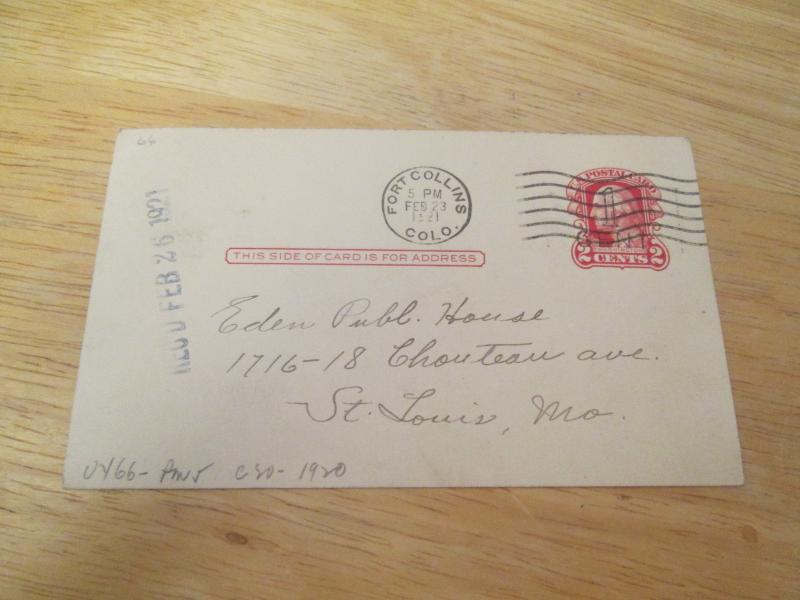 66
FORT COLLINS
5 PM
FEB 23
1921
COLO.
U.S. POSTAL CARD
1
CENT
WASHINGTON
2 CENTS 2
THIS SIDE OF CARD IS FOR ADDRESS
REC'D FEB 26 1921
Eden Publ. House
1716-18 Chouteau ave.
St. Louis, Mo.
UY66- c20- 1920